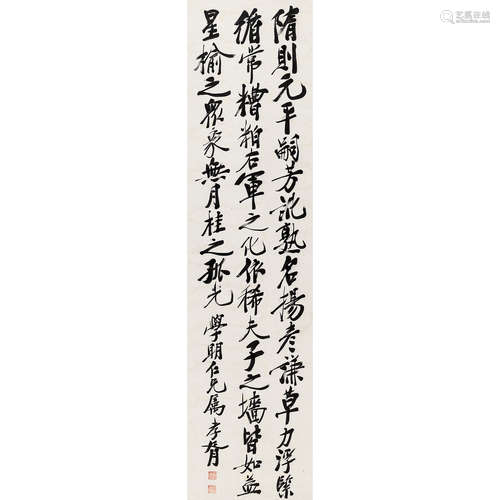 隋則元平嗣芳熟名揚彥謙草力浮緊
循常糟粕右軍之化依稀夫子之墻皆如益
星榆之眾象無月桂之孤光 學明仁兄屬 孝胥